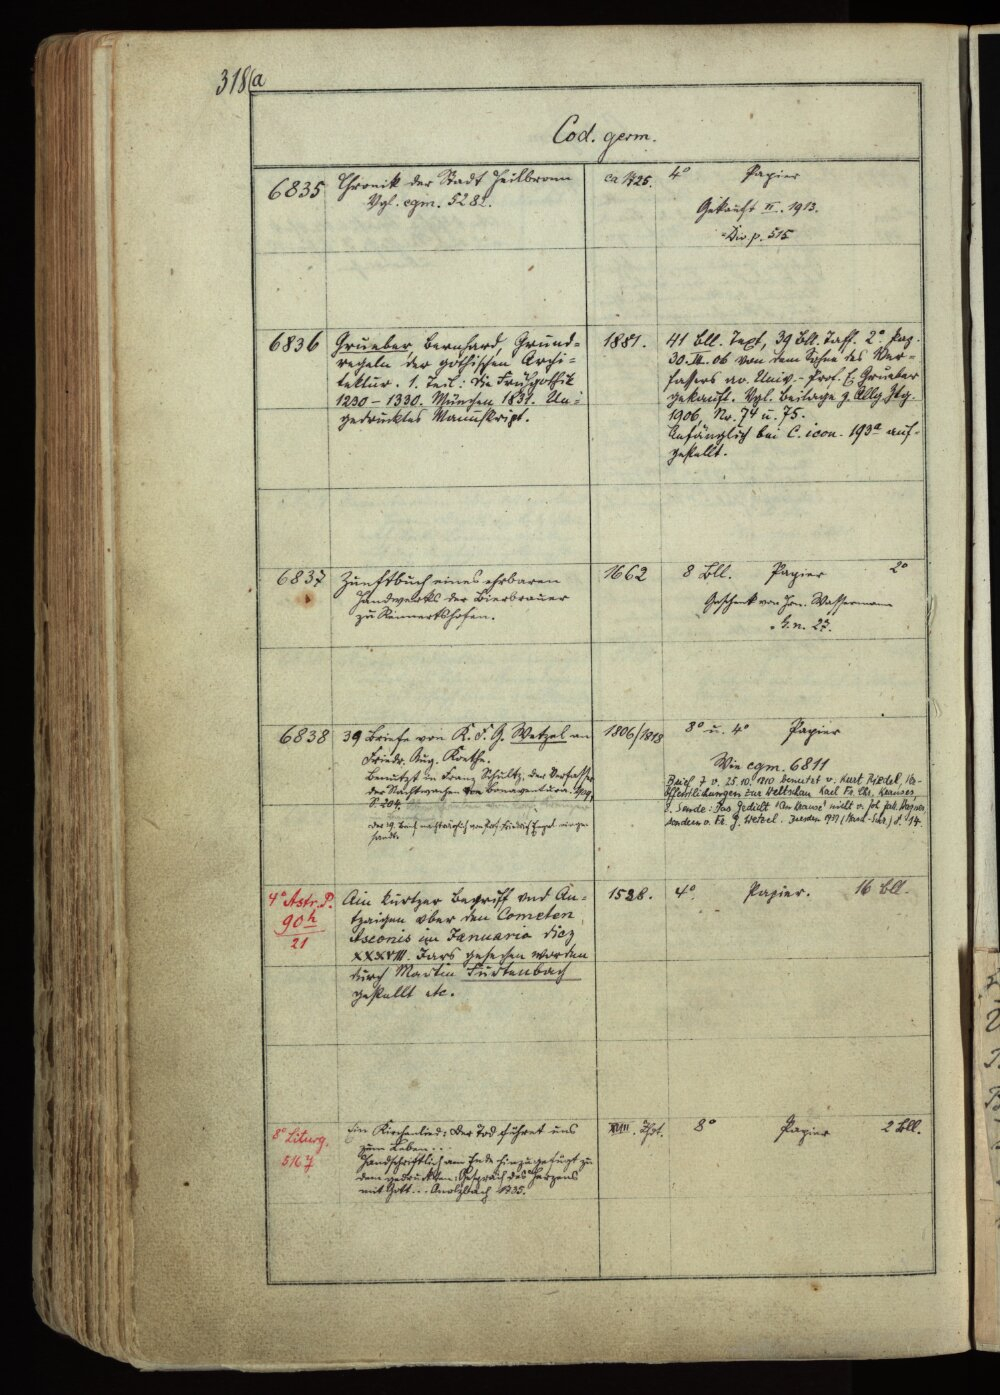 318a
Cod. germ.
6835
Chronik der Stadt Heilbronn
Vgl. cgm. 5282.
ca 1725.
4° Papier
Gekauft II. 1913.
Div p. 515
6836
Grueber Bernhard, Grund-
regeln der gothischen Archi-
tektur. 1. Teil: Die Frühgothik
1230 – 1330. München 1831. Un-
gedrucktes Manuskript.
1831.
41 Bll. Text, 39 Bll. Taff. 2° Pap.
30.III.06 von dem Sohne des Ver-
fassers ao. Univ.-Prof. E. Grueber
gekauft. Vgl. Beilage z. Allg. Ztg.
1906, Nr. 74 u. 75.
Anfänglich bei C. icon. 193a auf-
gestellt.
6837
Zunftbuch eines ehrbaren
Handwerks der Bierbrauer
zu Rennertshofen.
1662
8 Bll. Papier 2°
Geschenk von Wassermann
G. n. 27.
6838
39 Briefe von K. F. G. Wetzel an
Friedr. Aug. Koethe.
Benützt in Franz Schultz, der Verfasser
der Nachtwachen von Bonaventura. 1909,
S. 204.
Der 39. Brief nachträglich von Prof. Friedrich einge-
sandt.
1806/1818
8° u. 4° Papier
Wie cgm. 6811
Brief 7 v. 25.10.1810 benutzt v. Kurt Riedel, Ver-
öffentlichungen zur Weltschau Karl Fr. Chr. Krauses,
2. Sende: Das Gedicht "An Krause" nicht v. Joh. Jak. Wagner,
sondern v. Fr. G. Wetzel. Dresden 1937 S. 14.
4° Astr. P.
90h
21
Ain kurtzer Begriff vnd An-
tzaigen vber den Cometen
Asconis im Januario dicz
XXXVIII. Jars gesehen worden
durch Martin Furtenbach
gestellt etc.
1538.
4°. Papier. 16 Bll.
8° Liturg.
516 f
Ein Kirchenlied: Der Tod führet uns
zum Leben...
Handschriftlich am Ende hinzugefügt zu
dem gedruckten: Gespräch des Herzens
mit Gott... Onolzbach 1735.
XVIII. Jhdt.
8° Papier 2 Bll.